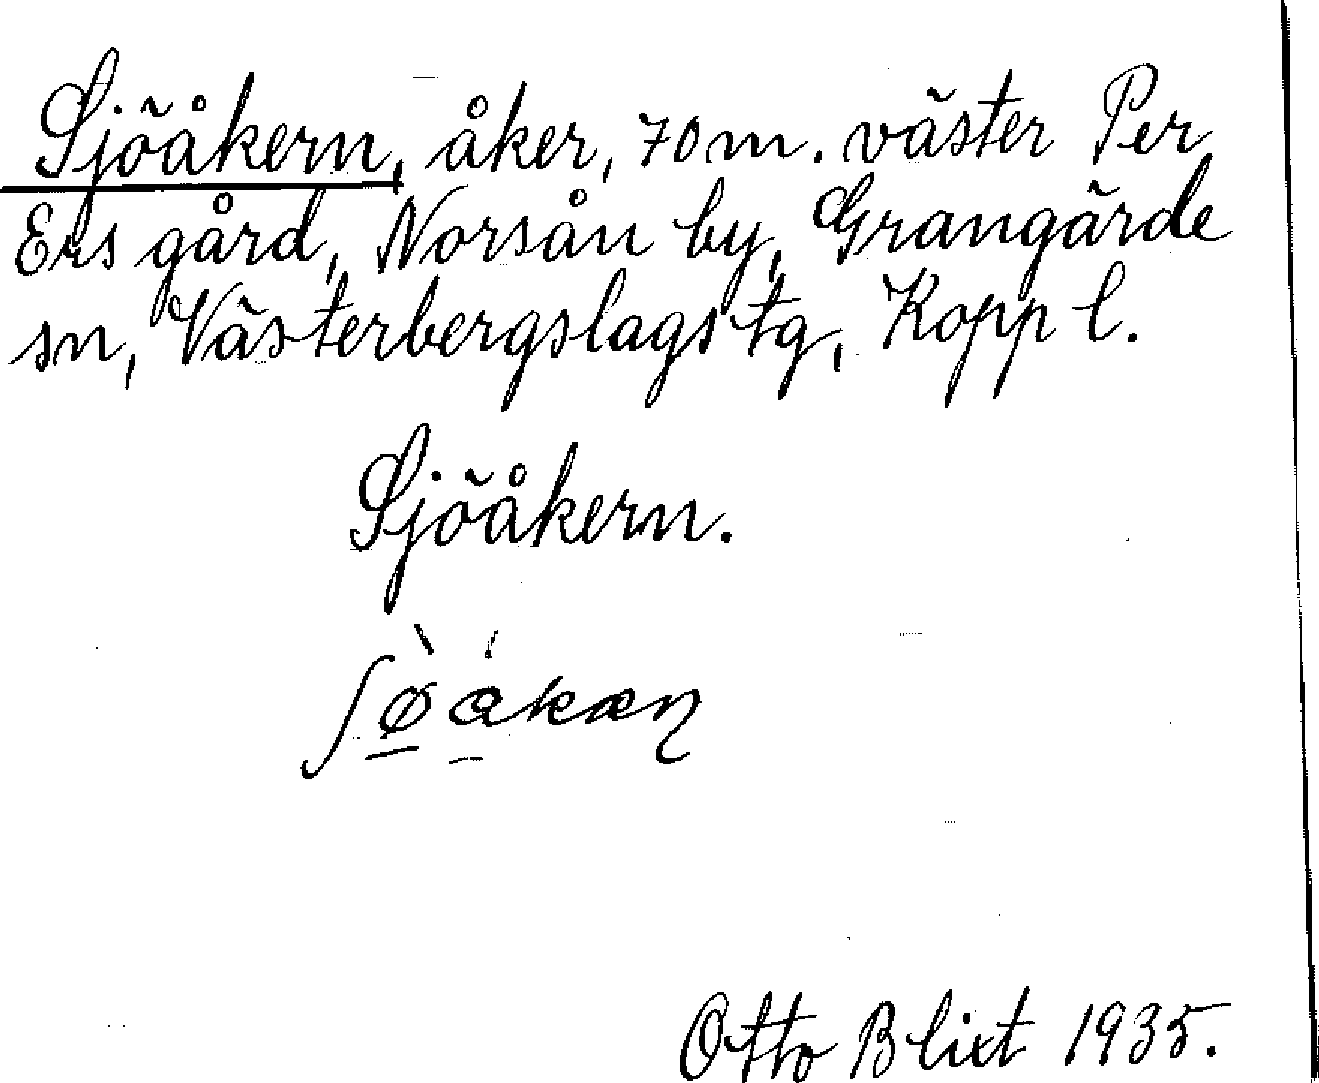 Sjöåkern, åker, 70 m. väster Per
Ers gård, Norsån by, Grangärde
sn, Västerbergslags tg, Kopp l.
Sjöåkern.
Otto Blixt 1935.